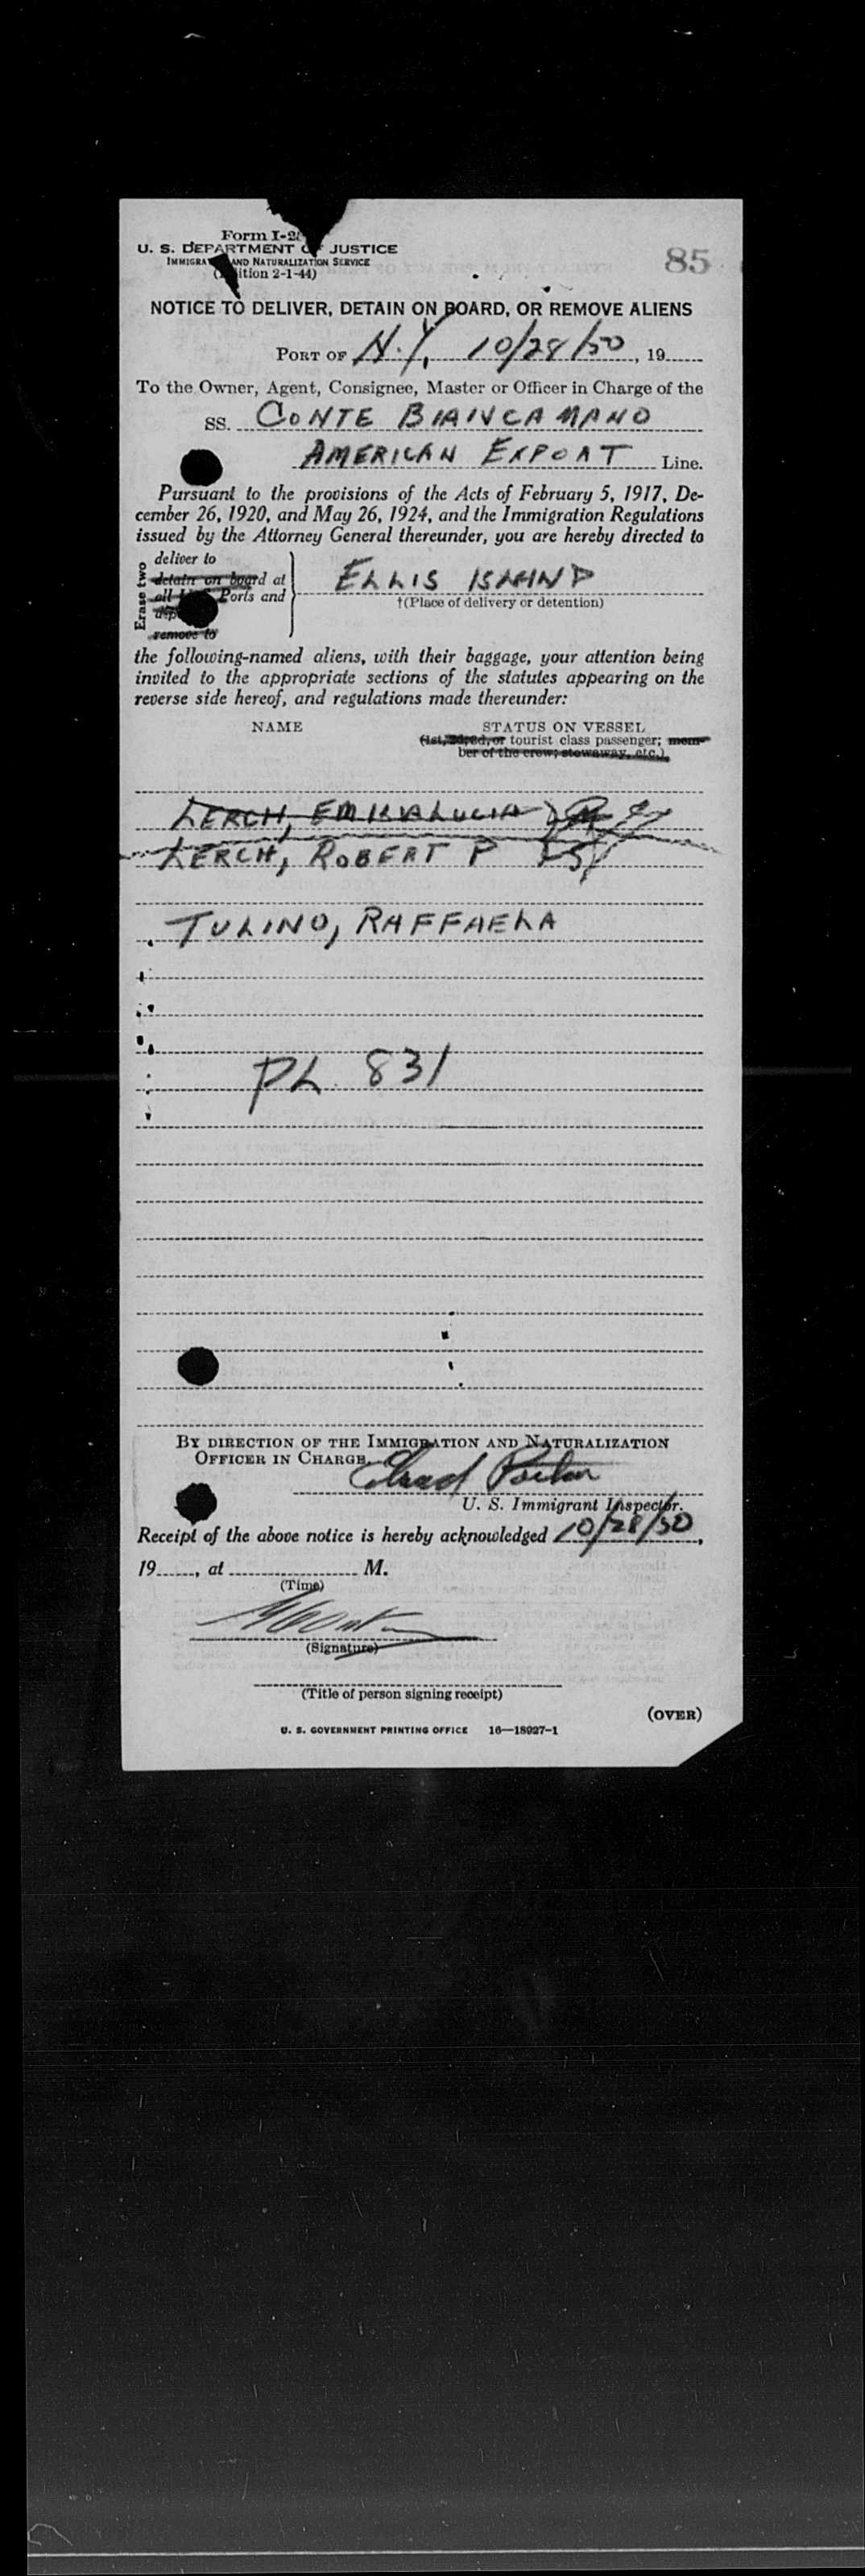 Form I-2
U. S. DEPARTMENT OF JUSTICE
IMMIGRATION AND NATURALIZATION SERVICE
(Edition 2-1-44)
85
NOTICE TO DELIVER, DETAIN ON BOARD, OR REMOVE ALIENS
PORT OF N.Y, 10/28/50, 19
To the Owner, Agent, Consignee, Master or Officer in Charge of the
SS. CONTE BIANCAMANO
AMERICAN EXPORT Line.
Pursuant to the provisions of the Acts of February 5, 1917, De-
cember 26, 1920, and May 26, 1924, and the Immigration Regulations
issued by the Attorney General thereunder, you are hereby directed to
Erase two
deliver to
detain on board at
all Ports and
remove to
ELLIS ISLAND
†(Place of delivery or detention)
the following-named aliens, with their baggage, your attention being
invited to the appropriate sections of the statutes appearing on the
reverse side hereof, and regulations made thereunder:
NAME STATUS ON VESSEL
(1st, 2d, 3d, or tourist class passenger; mem-
ber of the crew; stowaway, etc.)
LERCH,
LERCH, ROBERT P
TULINO, RAFFAELA
PL 831
BY DIRECTION OF THE IMMIGRATION AND NATURALIZATION
OFFICER IN CHARGE.
U. S. Immigrant Inspector.
Receipt of the above notice is hereby acknowledged 10/28/50,
19, at M.
(Time)
(Signature)
(Title of person signing receipt)
(OVER)
U. S. GOVERNMENT PRINTING OFFICE 16—18927-1